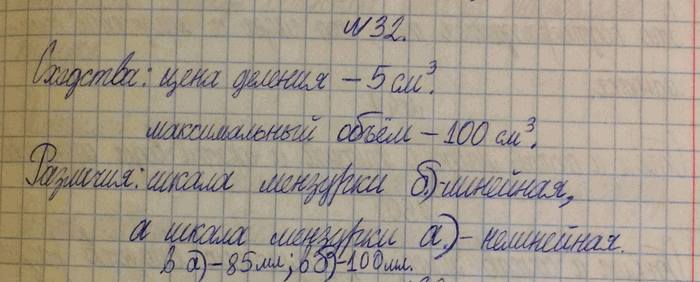 №32.
Сходства: цена деления – 5 см³.
максимальный объём – 100 см³.
Различия: шкала мензурки б)-линейная,
а шкала мензурки а) - нелинейная.
в а) - 85 мл; в б) - 100 мл.